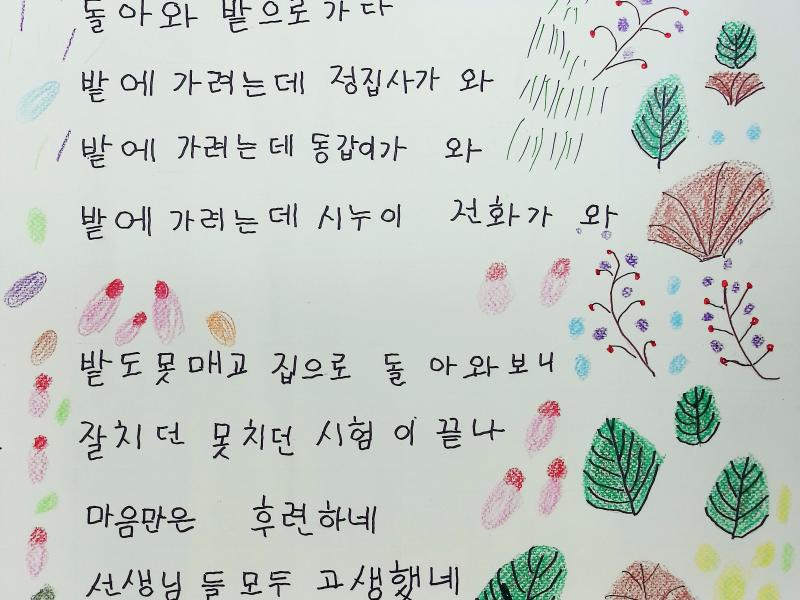 돌아와 밭으로 가다
밭에 가려는데 정집사가 와
밭에 가려는데 동갑이가 와
밭에 가려는데 시누이 전화가 와
밭도 못매고 집으로 돌아와보니
잘치던 못치던 시험이 끝나
마음만은 후련하네
선생님들 모두 고생했네